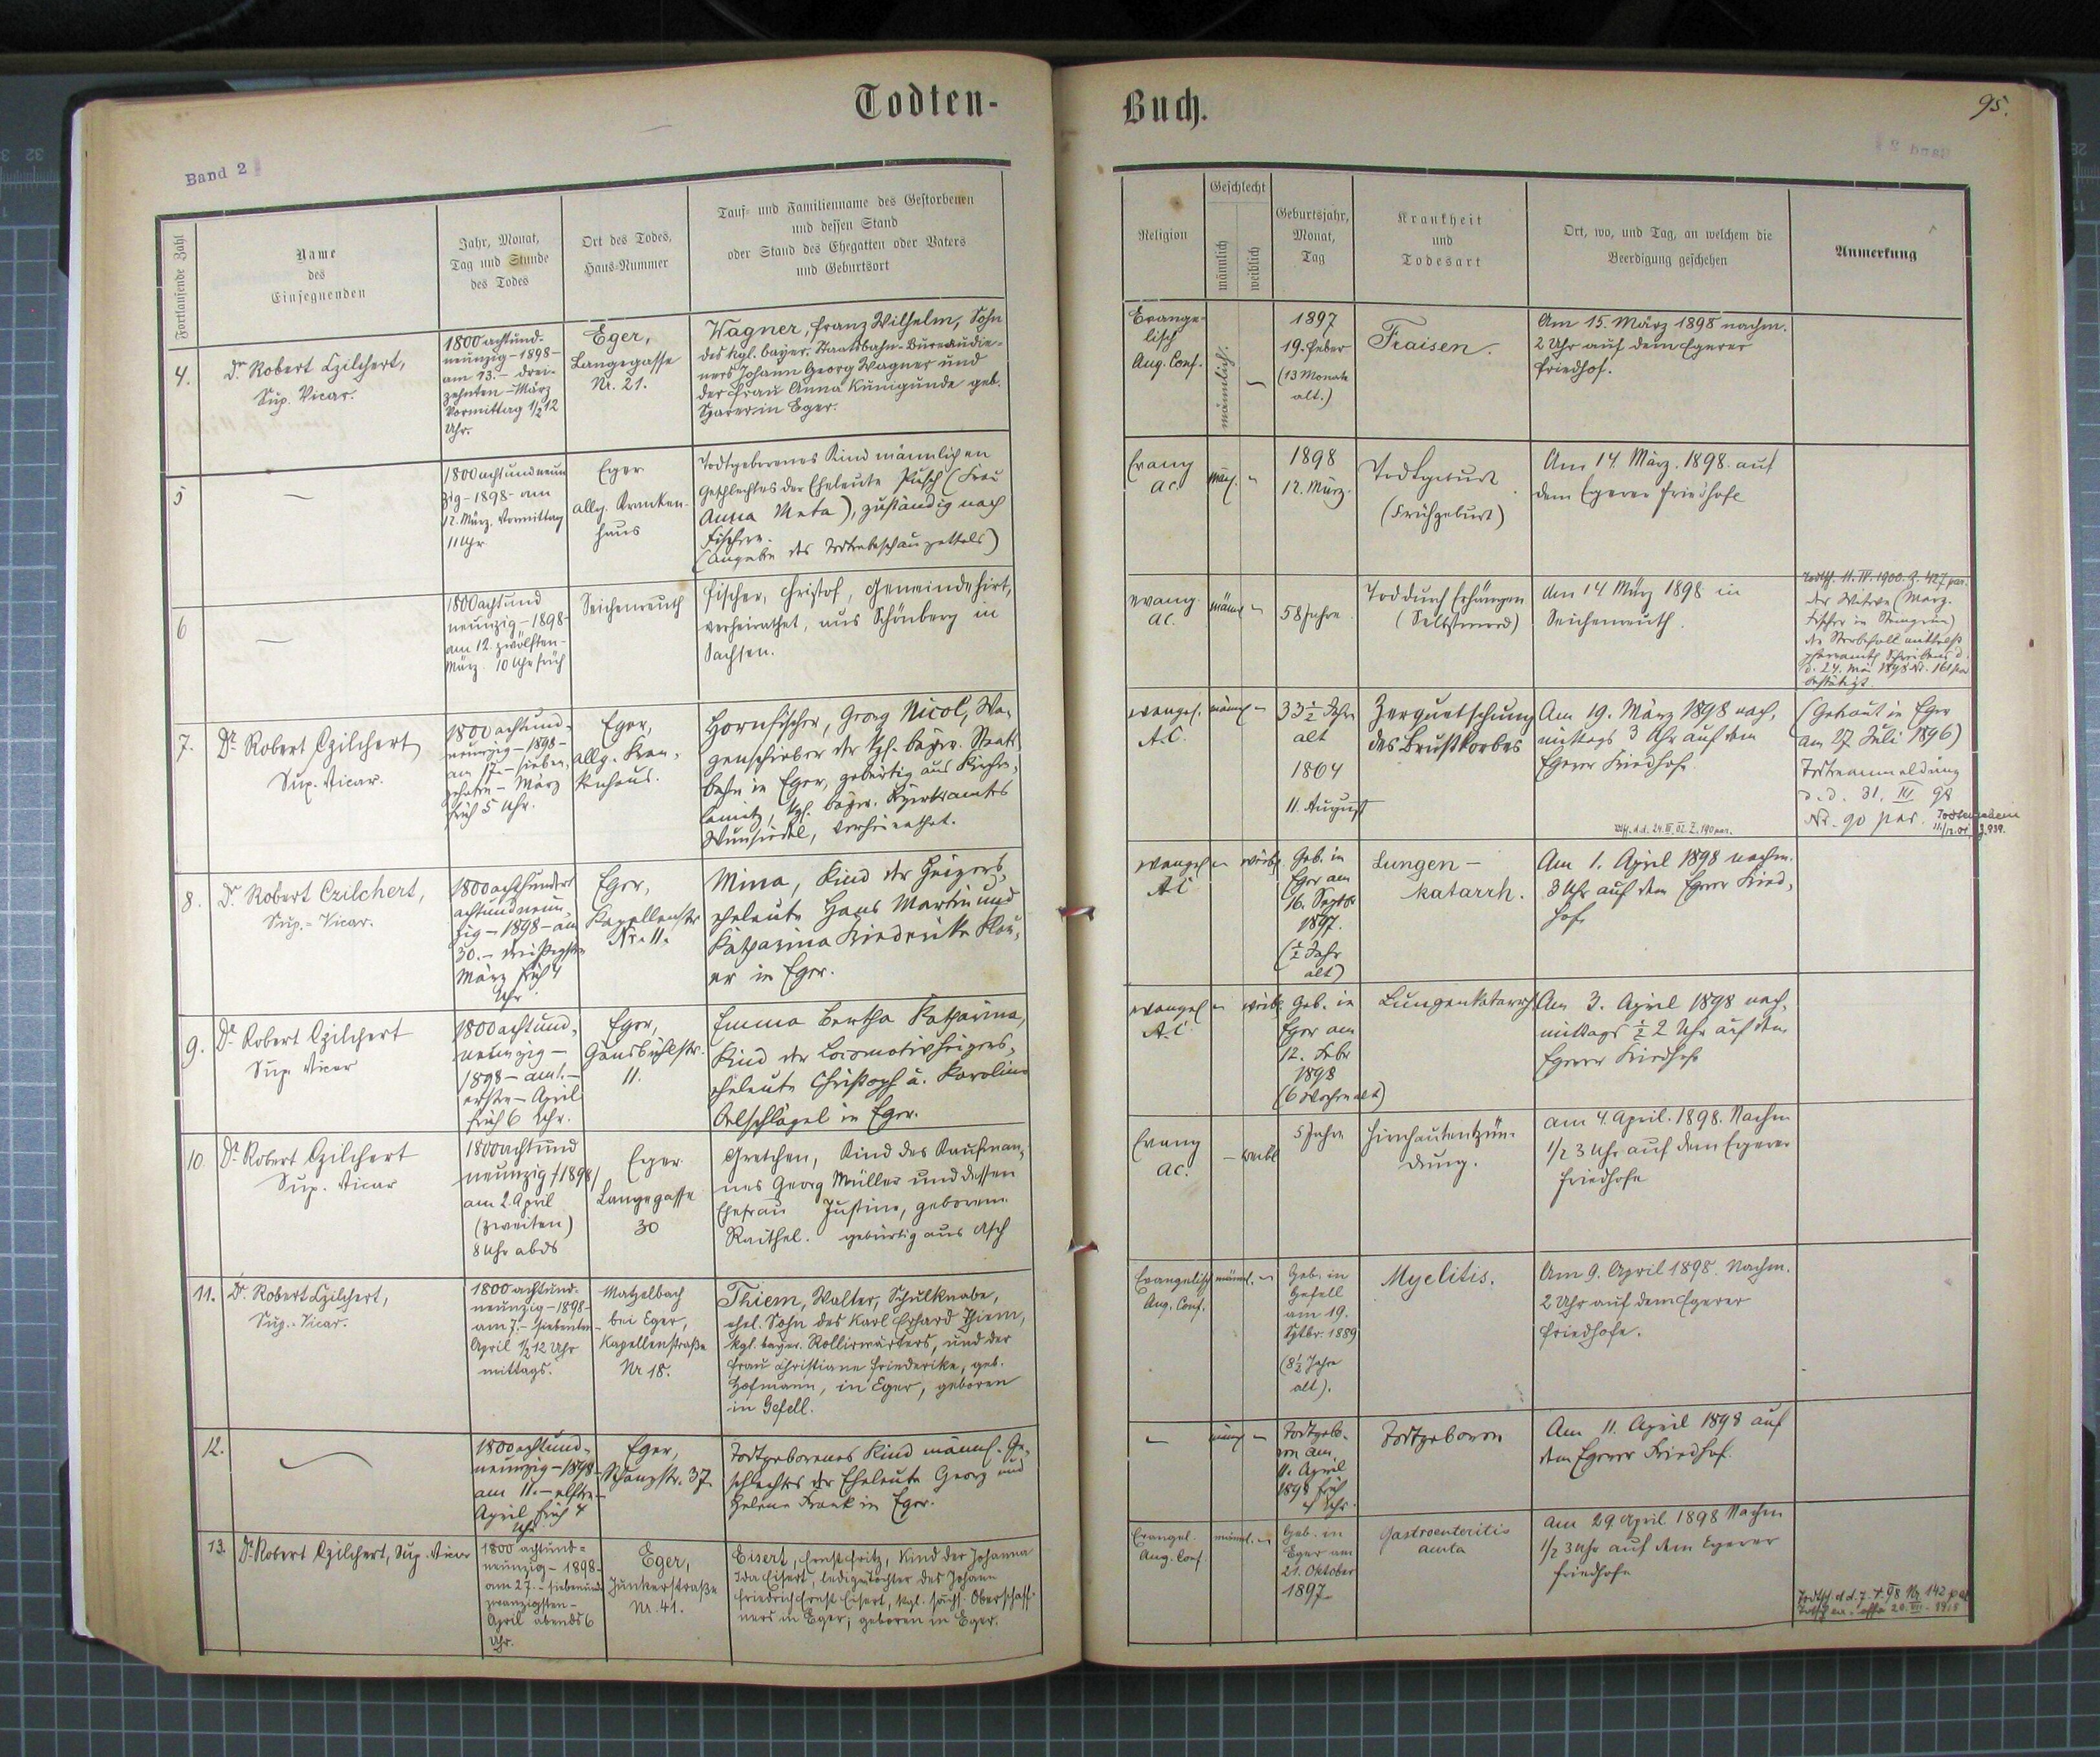 Todten-
Band 2
Fortlaufende Zahl
Name
des
Einsegnenden
Jahr, Monat,
Tag und Stunde
des Todes
Ort des Todes,
Haus-Nummer
Tauf- und Familienname des Gestorbenen
und dessen Stand
oder Stand des Ehegatten oder Vaters
und Geburtsort
4.
Dr Robert Czilchert,
Sup. Vicar.
1800 achtund-
neunzig - 1898 -
am 13. - drei-
zehnten - März
Vormittag 1/2 12
Uhr.
Eger,
Langegasse
Nr. 21.
Wagner, Franz Wilhelm, Sohn
des kgl. bayer. Staatsbahn-Bureaudie-
ners Johann Georg Wagner und
der Frau Anna Kunigunde geb.
in Eger.
5
1800 achtundneun
zig - 1898 - am
12. März. Vormittag
11 Uhr
Eger
allg. Kranken-
haus
Todtgeborenes Kind männlichen
Geschlechtes der Eheleute Pusch (Frau
Anna Meta), zuständig nach
Fischern.
(Angabe des Todtenbeschauzettels)
6
1800 achtund
neunzig - 1898 -
am 12. zwölften -
März 10 Uhr früh
Seichenreuth
Fischer, Christof, Gemeindehirt,
verheirathet, aus Schönberg in
Sachsen.
7.
Dr Robert Czilchert
Sup. Vicar.
1800 achtund-
neunzig - 1898 -
am 17. - sieben-
zehnten - März
früh 5 Uhr.
Eger,
allg. Kran-
kenhaus.
Hornfischer, Georg Nicol, Wa-
genschieber der kgl. bayer. Staats
bahn in Eger, gebürtig aus Kirchen-
lamitz, kgl. bayer. Bezirksamtes
Wunsiedel, verheirathet.
8.
Dr Robert Czilchert,
Sup.-Vicar.
1800 achthundert
achtundneun-
zig - 1898 - am
30. - dreißigsten
März früh 4
Uhr.
Eger,
Kapellenstr
Nr. 11.
Mina, Kind der Heizers-
eheleute Hans Martin und
Katharina Friederike
in Eger.
9.
Dr Robert Czilchert
Sup. Vicar
1800 achtund-
neunzig -
1898 - am 1. -
ersten - April
früh 6 Uhr.
Eger,
Gansbühlstr.
11.
Emma Bertha Katharina,
Kind der Locomotivheizers-
eheleute Christoph u. Karolina
Oelschlägel in Eger.
10
Dr Robert Czilchert
Sup. Vicar
1800 achtund
neunzig /1898/
am 2. April
(zweiten)
8 Uhr abds
Eger
Langegasse
30
Gretchen, Kind des Kaufman-
nes Georg Müller und dessen
Ehefrau Justine, geborene
Raithel. gebürtig aus Asch
11.
Dr Robert Czilchert,
Sup.-Vicar.
1800 achtund-
neunzig - 1898 -
am 7. - siebenten -
April 1/2 12 Uhr
mittags.
Matzelbach
bei Eger,
Kapellenstraße
Nr 18.
Thiem, Walter, Schulknabe,
ehel. Sohn des Karl Erhard Thiem,
kgl. bayer. Rollirwärters, und der
Frau Christiane Friederike, geb.
Hofmann, in Eger, geboren
in Gefell.
12.
1800 achtund-
neunzig - 1898 -
am 11. - elften -
April, früh 4
Uhr
Eger,
Schanzstr. 37
Todtgeborenes Kind männl. Ge-
schlechtes der Eheleute Georg und
Helene Frank in Eger.
13.
Dr Robert Czilchert, Sup. Vicar
1800 achtund-
neunzig - 1898 -
am 27. - siebenund-
zwanzigsten -
April abends 6
Uhr.
Eger,
Junkerstraße
Nr. 41.
Eisert, Ernst Fritz, Kind der Johanna
Ida Eisert, lediger Tochter des Johann
Friedrich Ernst Eisert, kgl. sächs. Oberschaff-
ners in Eger; geboren in Eger.
Buch.
95.
Religion
Geschlecht
männlich
weiblich
Geburtsjahr,
Monat,
Tag
Krankheit
und
Todesart
Ort, wo, und Tag, an welchem die
Beerdigung geschehen
Anmerkung
Evange-
lisch
Aug. Conf.
männlich.
1897
19. Feber
(13 Monate
alt.)
Fraisen.
Am 15. März 1898 nachm.
2 Uhr auf dem Egerer
Friedhof.
Evang
AC.
männl.
1898
12. März.
Todtgeburt
(Frühgeburt)
Am 14. März. 1898. auf
dem Egerer Friedhofe
evang.
AC.
männl
58 Jahre
Tod durch Erhängen
(Selbstmord)
Am 14 März 1898 in
Seichenreuth.
Todtsch. 11. IV. 1900. Z. 427 par.
der Witwe (Marg.
Fischer in Steingrün)
Sterbefall mittelst
pfarramtl. Schreibens d.
d. 24. Mai 1898 Nr. 161 par
bestätigt.
evangel.
A.C.
männl
33 1/2 Jahre
alt
1864
11. August
Zerquetschung
des Brustkorbes
Am 19. März 1898 nach-
mittags 3 Uhr auf dem
Egerer Friedhofe.
(Getraut in Eger
am 27 Juli 1896)
Todtenanmeldung
d.d. 31. III 98
Nr. 90 par.
d.d. 24. III. 02. Z. 190 par.
evangel
A.C
weibl.
Geb. in
Eger am
16. Septbr
1897.
(1/2 Jahr
alt)
Lungen -
katarrh.
Am 1. April 1898 nachm.
3 Uhr auf dem Egerer Fried-
hofe
evangel
A.C.
weibl.
Geb. in
Eger am
12. Febr
1898
(6 Wochen alt)
Lungenkatarrh
Am 3. April 1898 nach-
mittags 1/2 2 Uhr auf dem
Egerer Friedhofe
Evang
AC.
weibl
5 Jahre
Hirnhautentzün-
dung.
am 4. April. 1898. Nachm
1/2 3 Uhr auf dem Egerer
Friedhofe
Evangelisch
Aug. Conf.
männl.
Geb. in
Gefell
am 19.
Sptbr. 1889
(8 1/2 Jahre
alt).
Myelitis.
Am 9. April 1898. Nachm.
2 Uhr auf dem Egerer
Friedhofe.
männl
Todtgeb-
ren am
11. April
1898 früh
4 Uhr.
Todtgeboren
Am 11. April 1898 auf
dem Egerer Friedhof.
Evangel.
Aug. Conf.
männl.
Geb. in
Eger am
21. Oktober
1897
Gastroenteritis
acuta
Am 29 April 1898 Nachm
1/2 3 Uhr auf dem Egerer
Friedhofe
Todtsch. d.d. 7. V. 98 Nr. 142 par